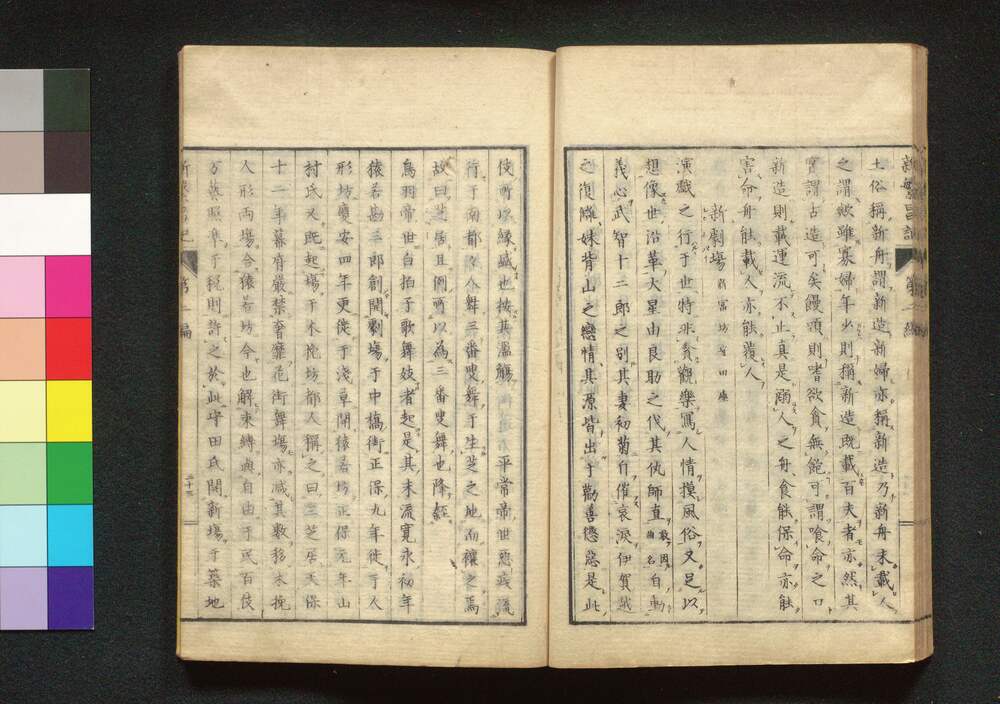 土俗稱新舟謂新造新婦亦稱新造乃新舟未載人
之謂歟雖寡婦年少則稱新造既載百夫者亦然其
實謂古造可矣饅頭則嗜欲食無飽可謂喰命之口
新造則載運流不止真是願人之舟食能保命亦能
害人命舟能載人亦能覆人
新劇場 新富坊守田座
演戲之行于世特非貪觀樂寫人情摸風俗又足以
想像世沿革大星由良助之代其仇師直敵因自動
義心武智十二郎之別其妻初菊自催哀淚伊賀越
之復讐妹背山之戀情其源皆出于勸善懲惡是此
使所以緣盛也按其濫觴平常帝世惡疫流
行于南都令人舞三番叟舞于生芝之地而穰之焉
故曰芝居且例所以為三番叟舞也降經
鳥羽帝世自拍子歌舞妓者起是其末流寬永初年
猿若勘三郎創開劇場于中橋街正保九年徙于人
形坊慶安四年更徙于淺草開猿若坊正保元年山
村氏又既起場于木挽坊都人稱之曰三芝居天保
十二年幕府嚴禁奢靡花街舞場亦減其數移木挽
人形兩場合猿若坊今也解束縛與自由于或百伎
万藝照準于稅則許之於此守田氏開新場于築地
新繁昌記 第二編 二十三